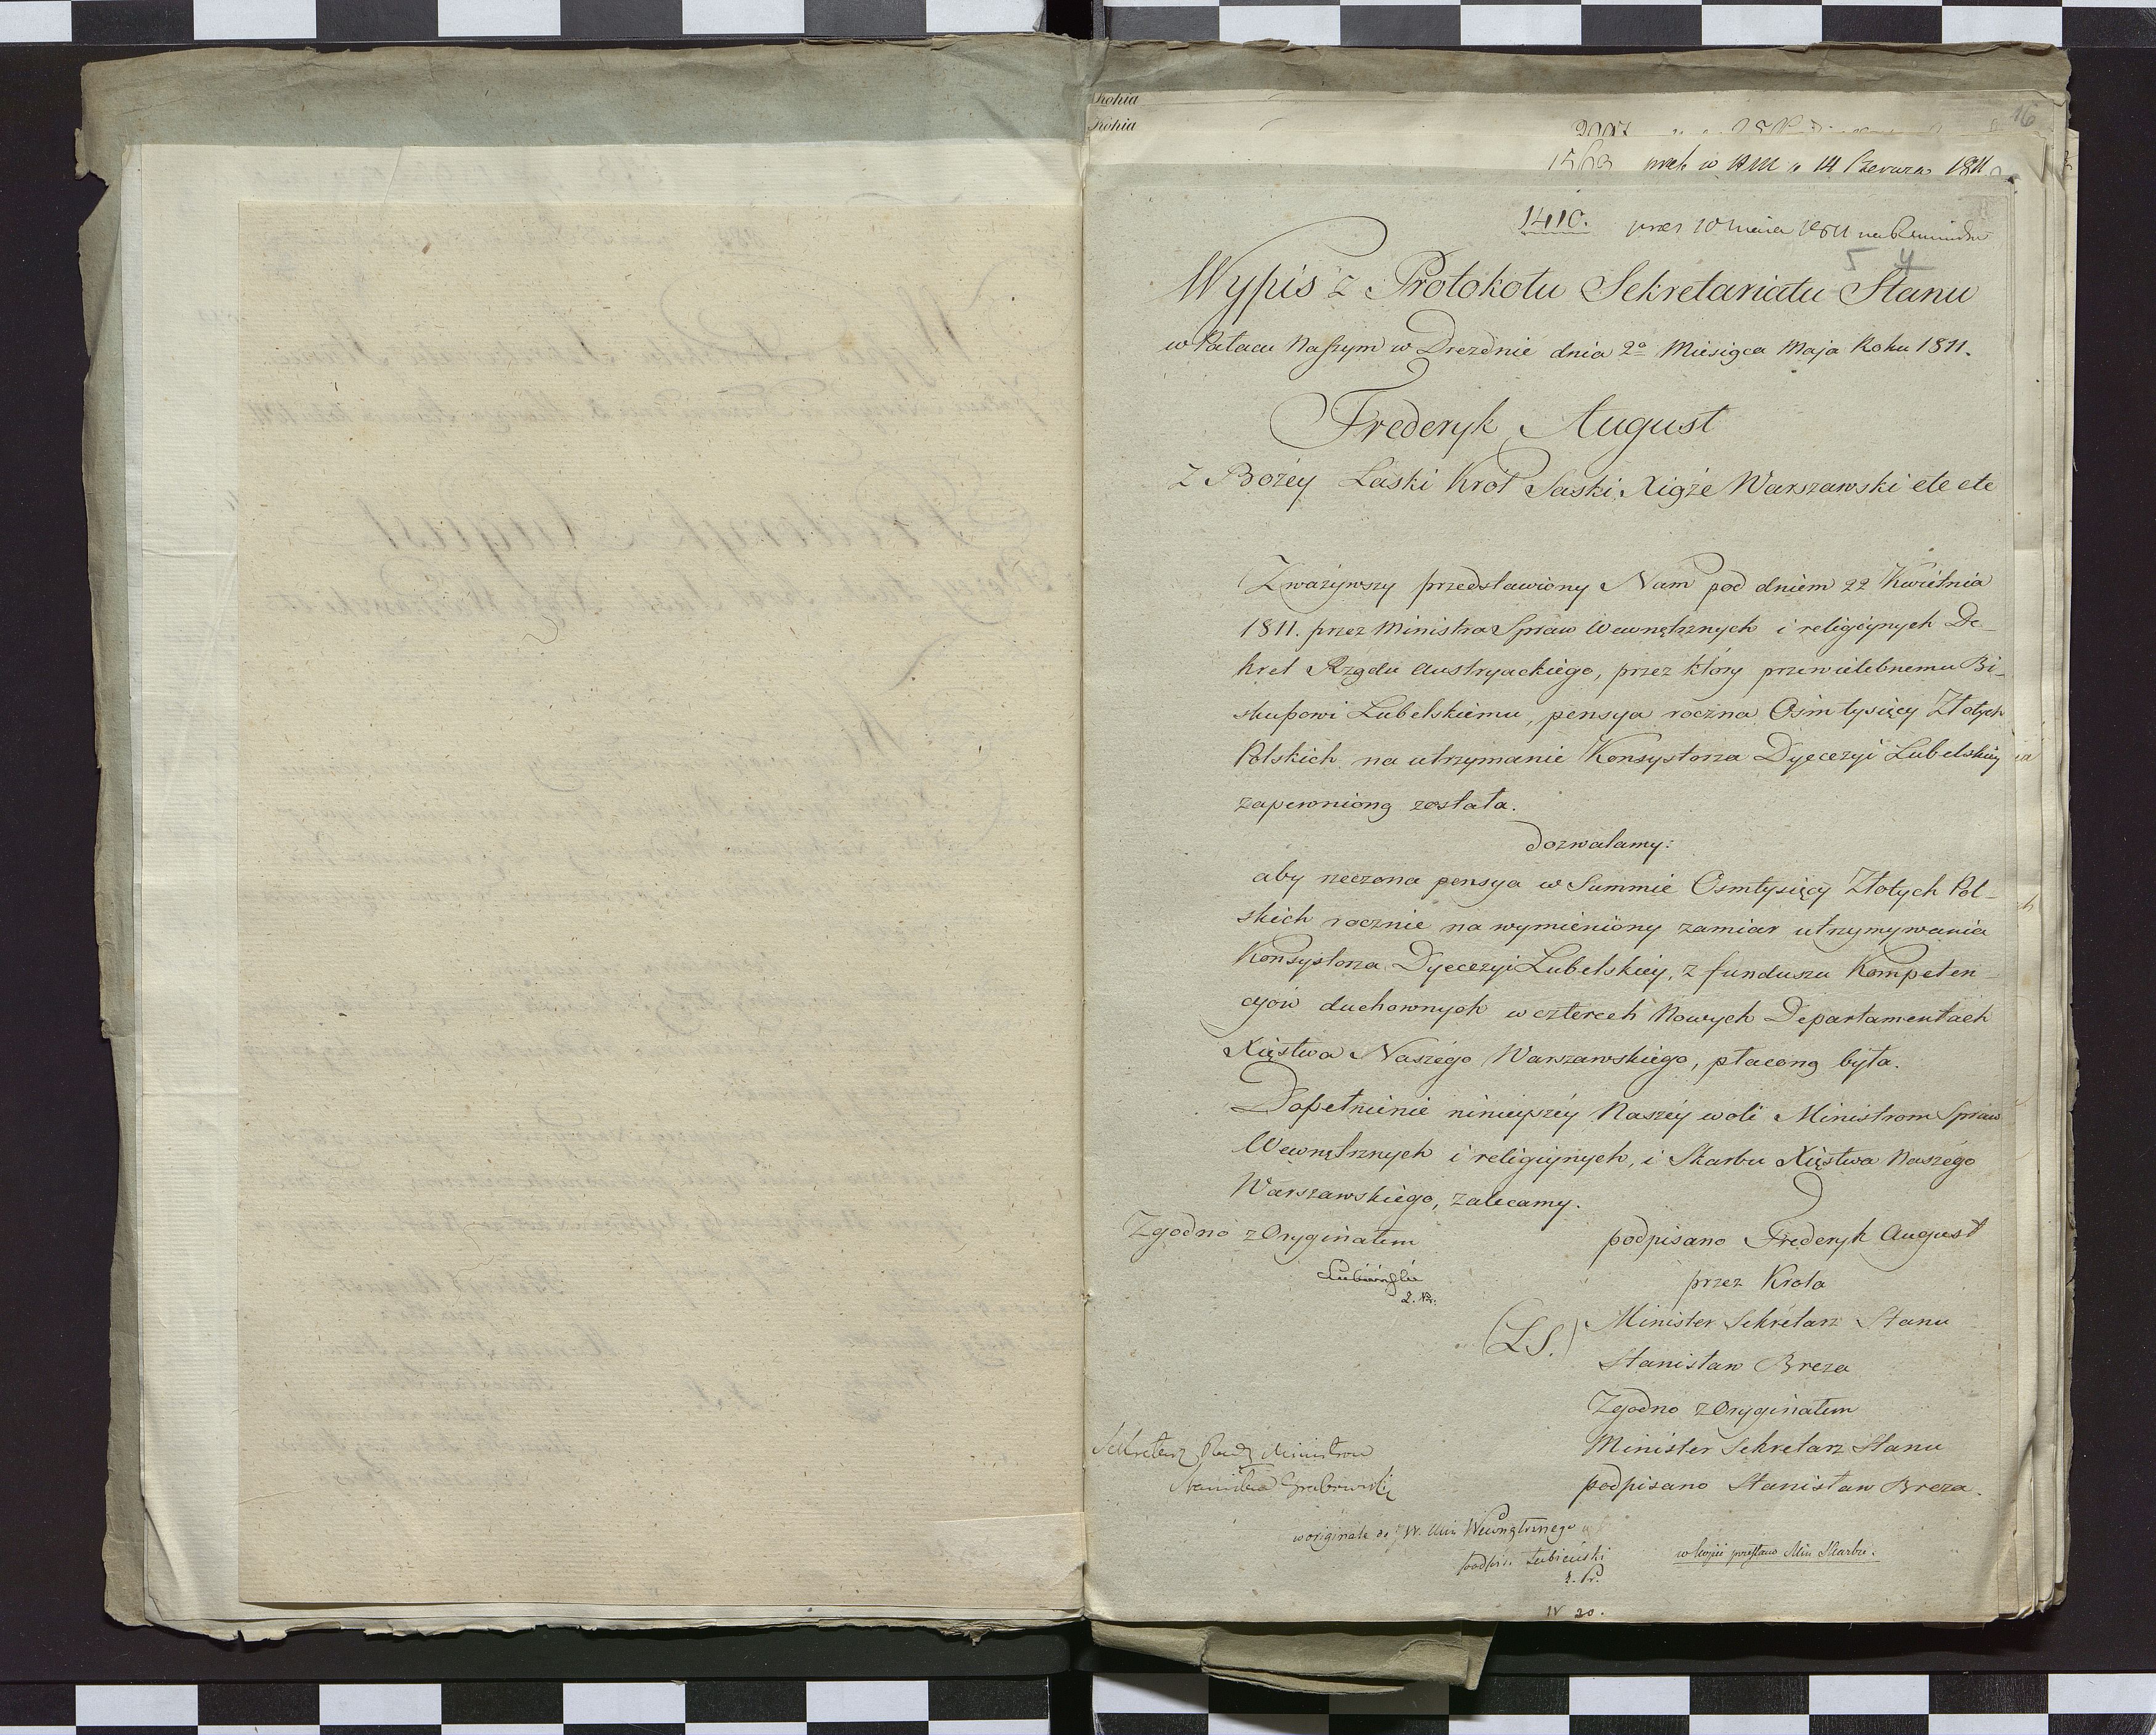 Kopia
Kopia
16
14 Czerwca 1811
1410. prez 10 maja 1811
5 4
Wypis z Protokołu Sekretariatu Stanu
w Pałacu Naszym w Dreznie dnia 2º Miesiąca Maja Roku 1811.
Frederyk August
z Bożéy Łaski Król Saski, Xiąże Warszawski etc etc
Zważywszy przedstawiony Nam pod dniem 22 Kwiétnia
1811. przez Ministra Spraw Wewnętrznych i religiynych De-
kret Rządu Austryackiégo, przez który przewielebnemu Bi-
skupowi Lubelskiému, pensya roczna Ośmtysięcy Złotych
Polskich na utrzymanie Konsystorza Dyecezyi Lubelskiéy
zapewnioną została.
dozwalamy:
aby rzeczona pensya w Summie Ośmtysięcy Złotych Pol-
skich rocznie na wymieniony zamiar utrzymywania
Konsystorza Dyecezyi Lubelskiéy, z funduszu Kompeten-
cyów duchownych w czterech Nowych Departamentach
Xięstwa Naszégo Warszawskiégo, płaconą była.
Dopełnienie ninieyszéy Naszéy woli Ministrom Spraw
Wewnętrznych i religiynych, i Skarbu Xięstwa Naszégo
Warszawskiégo, zalecamy.
Zgodno z Oryginałem
Łubieński
podpisano Frederyk August
przez Króla
(LS.) Minister Sekretarz Stanu
Stanisław Breza
Zgodno z Oryginałem
Minister Sekretarz Stanu
podpisano Stanisław Breza.
Sekretarz Rady Ministrow
Stanisław Grabowski
w originale do J W. Min Wewnętrznego
podpis. Łubieński
w kopii przesłano Min Skarbu.
N 20.